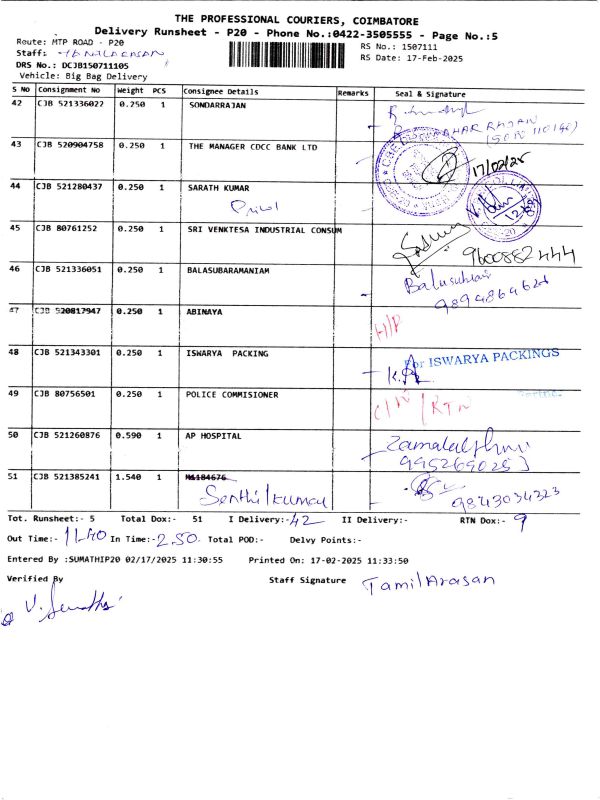 THE PROFESSIONAL COURIERS, COIMBATORE
Delivery Runsheet - P20 - Phone No.:0422-3505555 - Page No.:5
Route: MTP ROAD - P20
RS No.: 1507111
Staff:
DRS No.: DCJB150711105
RS Date: 17-Feb-2025
Vehicle: Big Bag Delivery
S No Consignment No Weight PCS Consignee Details Remarks Seal & Signature
42 CJB 521336022 0.250 1 SONDARRAJAN
43 CJB 520904758 0.250 1 THE MANAGER CDCC BANK LTD
17/02/25
44 CJB 521280437 0.250 1 SARATH KUMAR
45 CJB 80761252 0.250 1 SRI VENKTESA INDUSTRIAL CONSUM
9600882444
46 CJB 521336051 0.250 1 BALASUBARAMANIAM
47 CJB 520817947 0.250 1 ABINAYA
48 CJB 521343301 0.250 1 ISWARYA PACKING
For ISWARYA PACKINGS
49 CJB 80756501 0.250 1 POLICE COMMISIONER
/RTN
50 CJB 521260876 0.590 1 AP HOSPITAL
51 CJB 521385241 1.540 1 M6184676
Senthil kumar
9843034323
Tot. Runsheet:- 5 Total Dox:- 51 I Delivery:- 42 II Delivery:- RTN Dox:- 9
Out Time:- 11.40 In Time:- 2.50. Total POD:- Delvy Points:-
Entered By :SUMATHIP20 02/17/2025 11:30:55 Printed On: 17-02-2025 11:33:50
Verified By Staff Signature TamilArasan